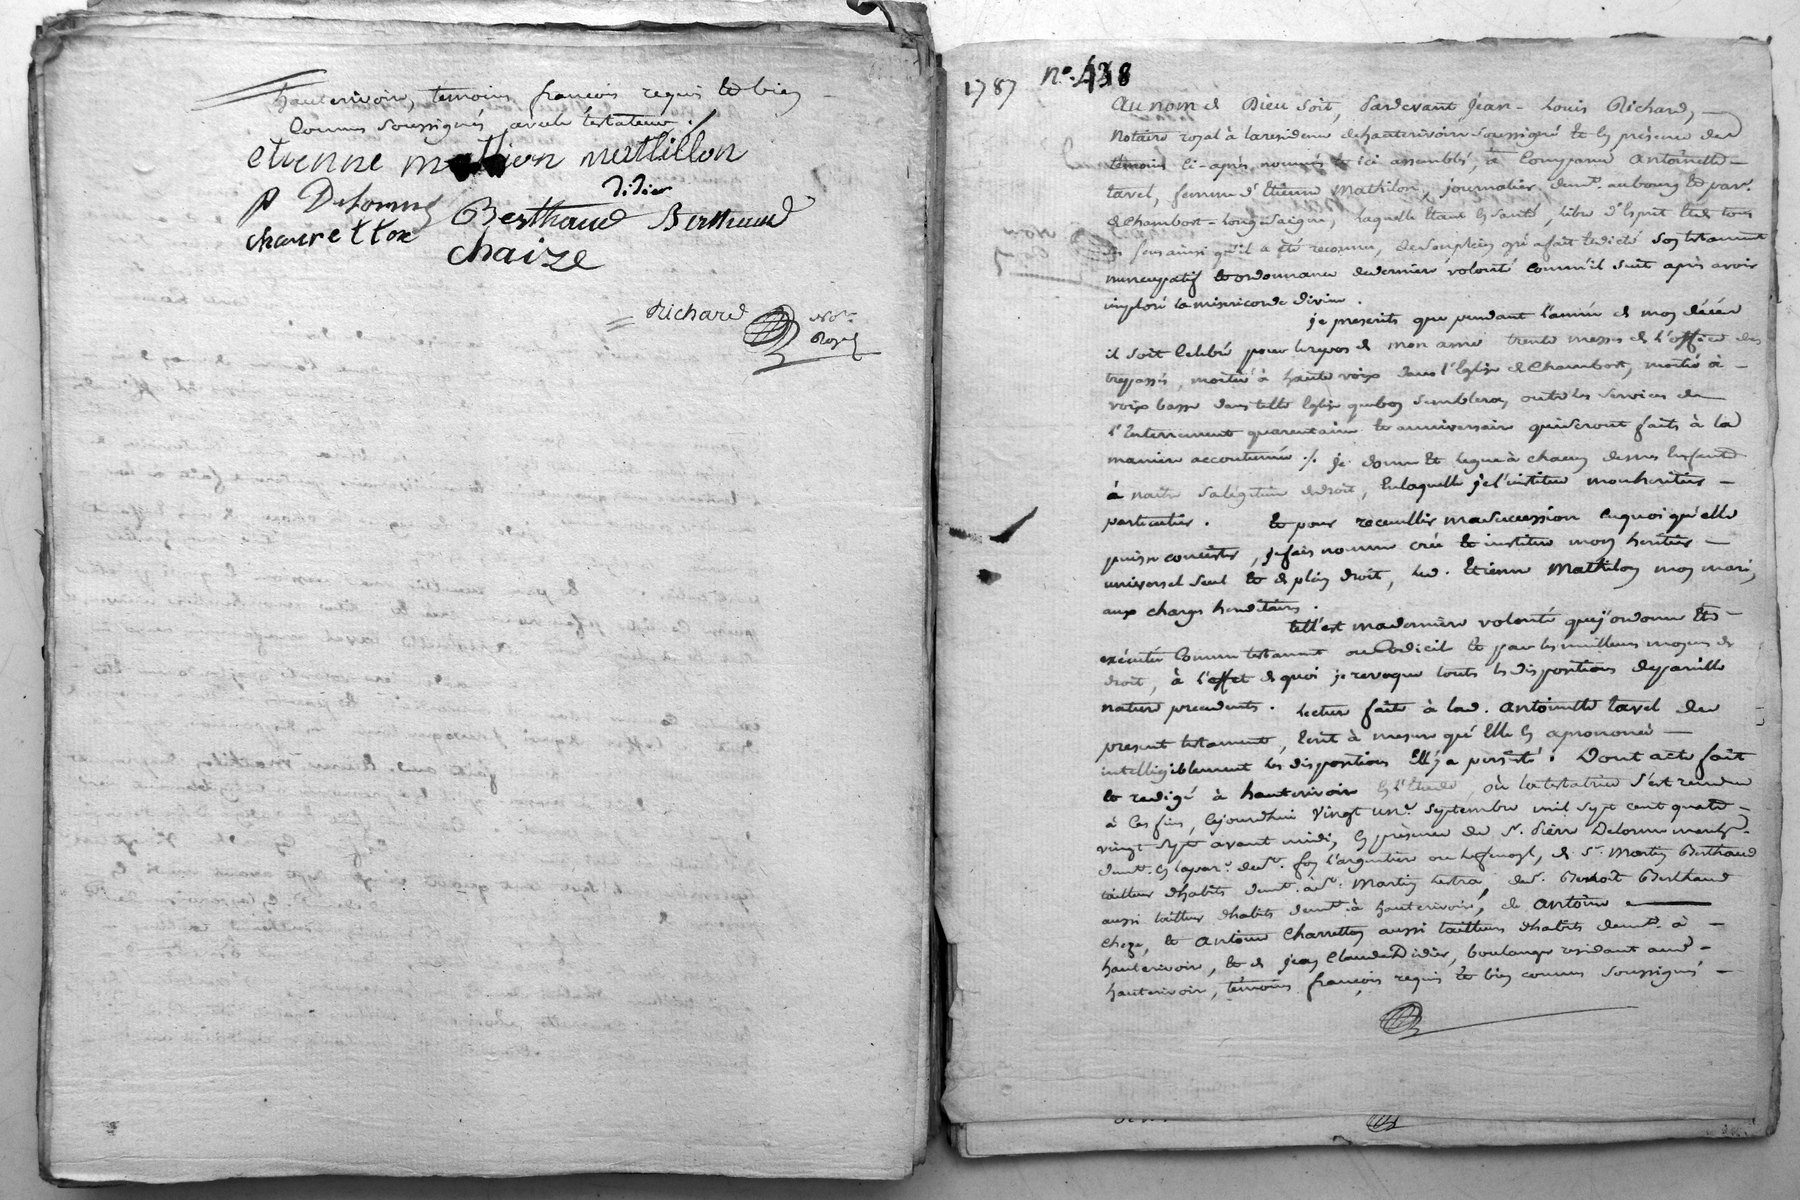 hauterivoir, temoins francois requis et bien
connus soussignés avec le testateur.
etienne mathillon
didier
P Delorme Berthaud Berthaud
charretton
chaize
Richard not.
Royal
1787 n°. 438
au nom de Dieu soit, Pardevant Jean-Louis Richard,
Notaire royal à la residence dehauterivoir soussigné et en présence des
témoins ci-après nommés et ici assemblés, à Comparue antoinette
tavel, femme d'Etienne Mathilon, journalier demt. au bourg et parr.
de Chambost-Longessaigne, laquelle étant en santé, libre d'Esprit et de tous
ses sens ainsi qu'il a été reconnu, de son plein gré a fait et dicté son testament
nuncupatif et ordonnance de derniere volonté comm'il suit après avoir
imploré la misericorde divine.
je prescrits que pendant l'année de mon décès
il soit Celebré pour le repos de mon ame trente messes de l'office des
trepassés, moitié à haute voix dans l'Eglise de Chambost, moitié à
voix basse dans telle Eglise que bon semblera, outre les services de
l'Enterrement quarentaine et anniversaire qui seront faits à la
maniere accoutumée ./. je donne et legue à chacun de mes Enfants
à naitre sa légitime de droit, en laquelle je l'institue mon heritier
particulier. et pour receuillir ma succession en quoi qu'elle
puisse consister, je fais nomme crée et institue mon heritier
universel seul et de plein droit, led. Etienne Mathilon mon mari,
aux charges hereditaires.
tell'est ma derniere volonté que j'ordonne être
exécutée Comme testament ou Codicil et par les meilleurs moyens de
droit, à l'effet de quoi je revoque touts les dispositions de pareille
nature precedents. Lecture faite à lad. antoinette tavel du
present testament, Ecrit à mesure qu'Elle en a prononcé
intelligiblement les dispositions Ell'y a persisté. Dont acte fait
et redigé à hauterivoir en l'Etude, où la testatrice s'est rendue
à Ces fins, Cejourdhui vingt un.e septembre mil sept cent quatre
vingt sept avant midi, en présence de Sr. Pierre Delorme
demt. en la par. de St. foy l'argentière de Sr. Martin Berthaud
tailleur d'habits demt. à St. Martin Lestra, de Sr. Benoit Berthaud
aussi tailleur d'habits demt. à hauterivoir, de antoine
Cheze, et antoine Charretton aussi tailleurs d'habits demt. à
hauterivoir, et de jean Claude Didier, boulanger residant aud.
hauterivoir, témoins francois requis et bien connus soussignés